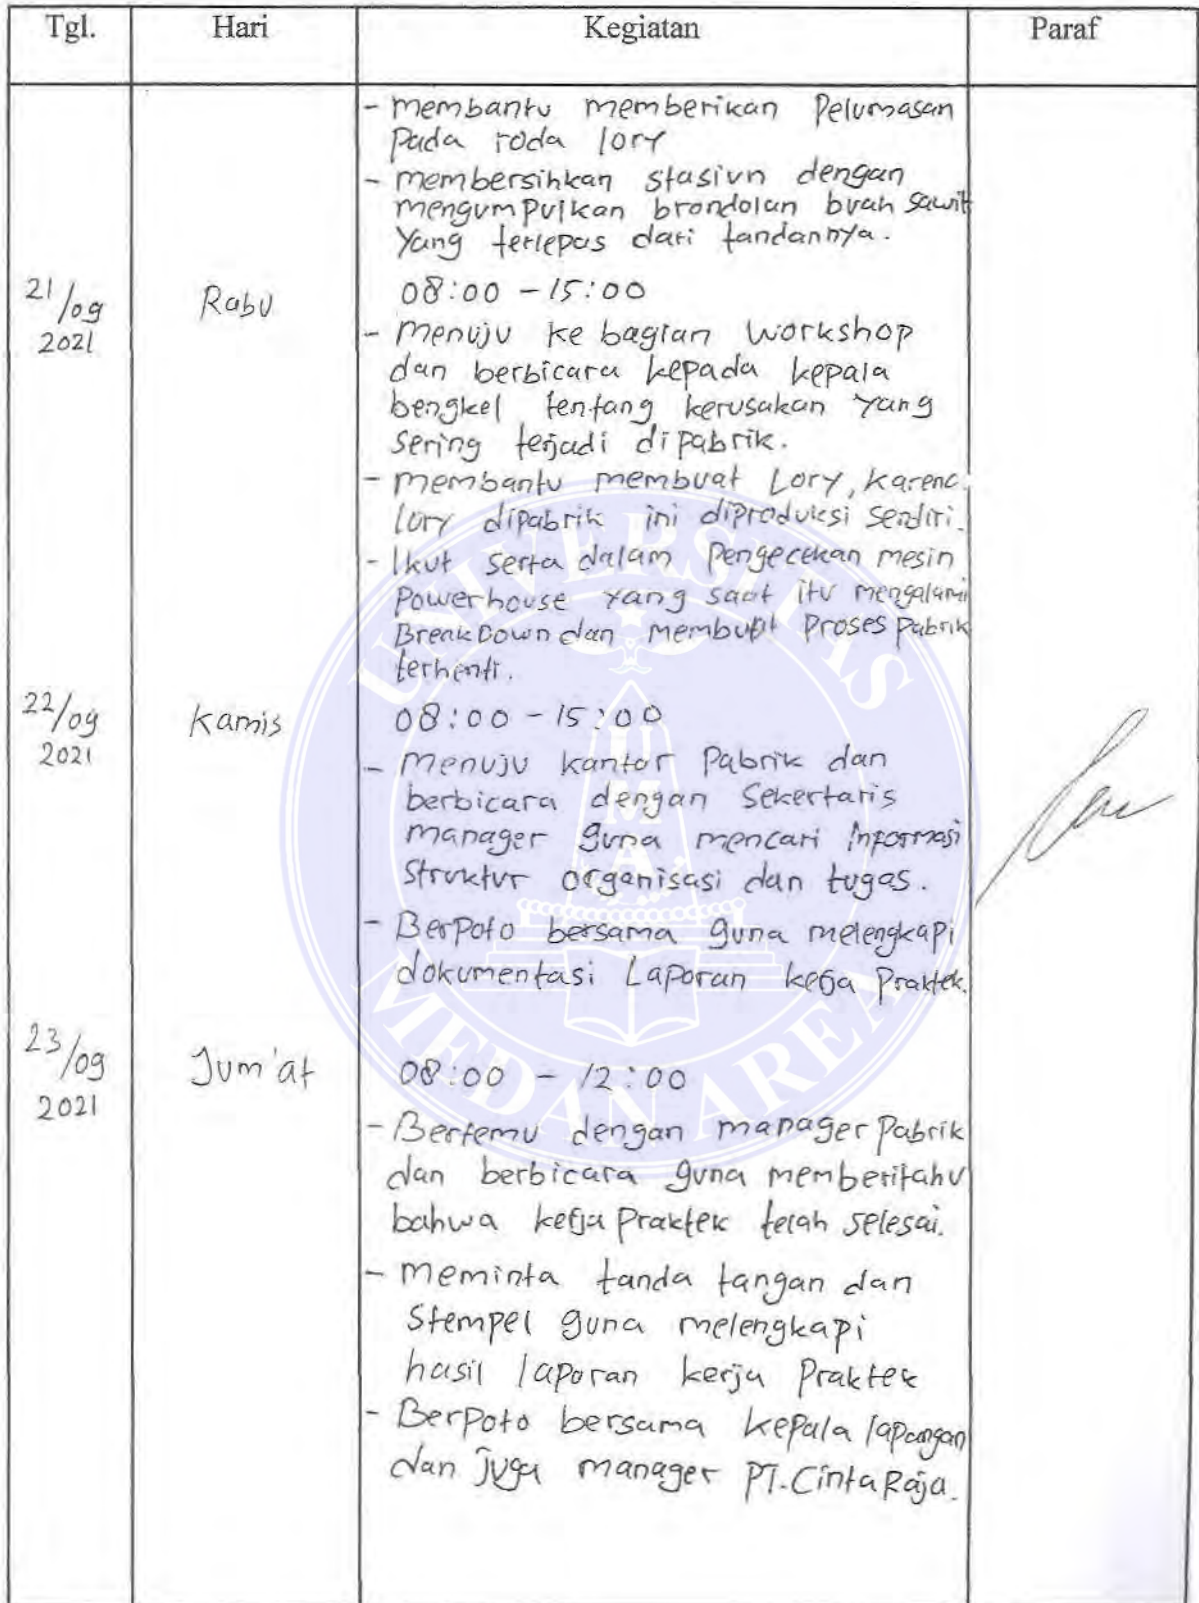 Tgl. Hari Kegiatan Paraf
- membantu memberikan Pelumasan
Pada roda lory
- membersihkan stasiun dengan
mengumpulkan brondolan buah sawit
Yang terlepas dari tandannya.
21/09 2021 Rabu 08:00 - 15:00
- Menuju ke bagian Workshop
dan berbicara kepada kepala
bengkel tentang kerusakan Yang
sering terjadi dipabrik.
- membantu membuat Lory, Karena
lory dipabrik ini diproduksi sendiri.
- Ikut serta dalam Pengecekan mesin
Powerhouse Yang saat itu mengalami
BreakDown dan membuat Proses Pabrik
terhenti.
22/09 2021 Kamis 08:00 - 15:00
- Menuju kantor Pabrik dan
berbicara dengan Sekertaris
manager guna mencari Informasi
Struktur organisasi dan tugas.
- BerPoto bersama guna melengkapi
dokumentasi Laporan kerja Praktek.
23/09 2021 Jum'at 08:00 - 12:00
- Bertemu dengan manager Pabrik
dan berbicara guna memberitahu
bahwa kerja Praktek telah selesai.
- meminta tanda tangan dan
Stempel guna melengkapi
hasil laporan kerja Praktek
- BerPoto bersama kepala lapangan
dan juga manager PT. Cinta Raja.
UNIVERSITAS
UMA
MEDAN AREA